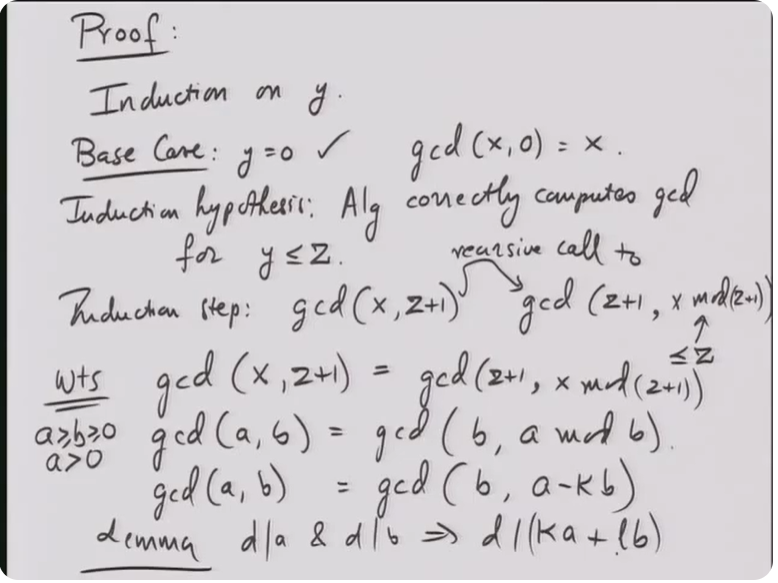 Proof:
Induction on y.
Base Case: y=0 ✓ gcd(x,0) = x.
Induction hypothesis: Alg correctly computes gcd
for y ≤ z.
recursive call to
Induction step: gcd(x,z+1) gcd(z+1, x mod(z+1))
≤ z
wts gcd(x,z+1) = gcd(z+1, x mod(z+1))
a≥b≥0 gcd(a,b) = gcd(b, a mod b).
a>0
gcd(a,b) = gcd(b, a-kb)
Lemma d|a & d|b ⇒ d|(ka + lb)